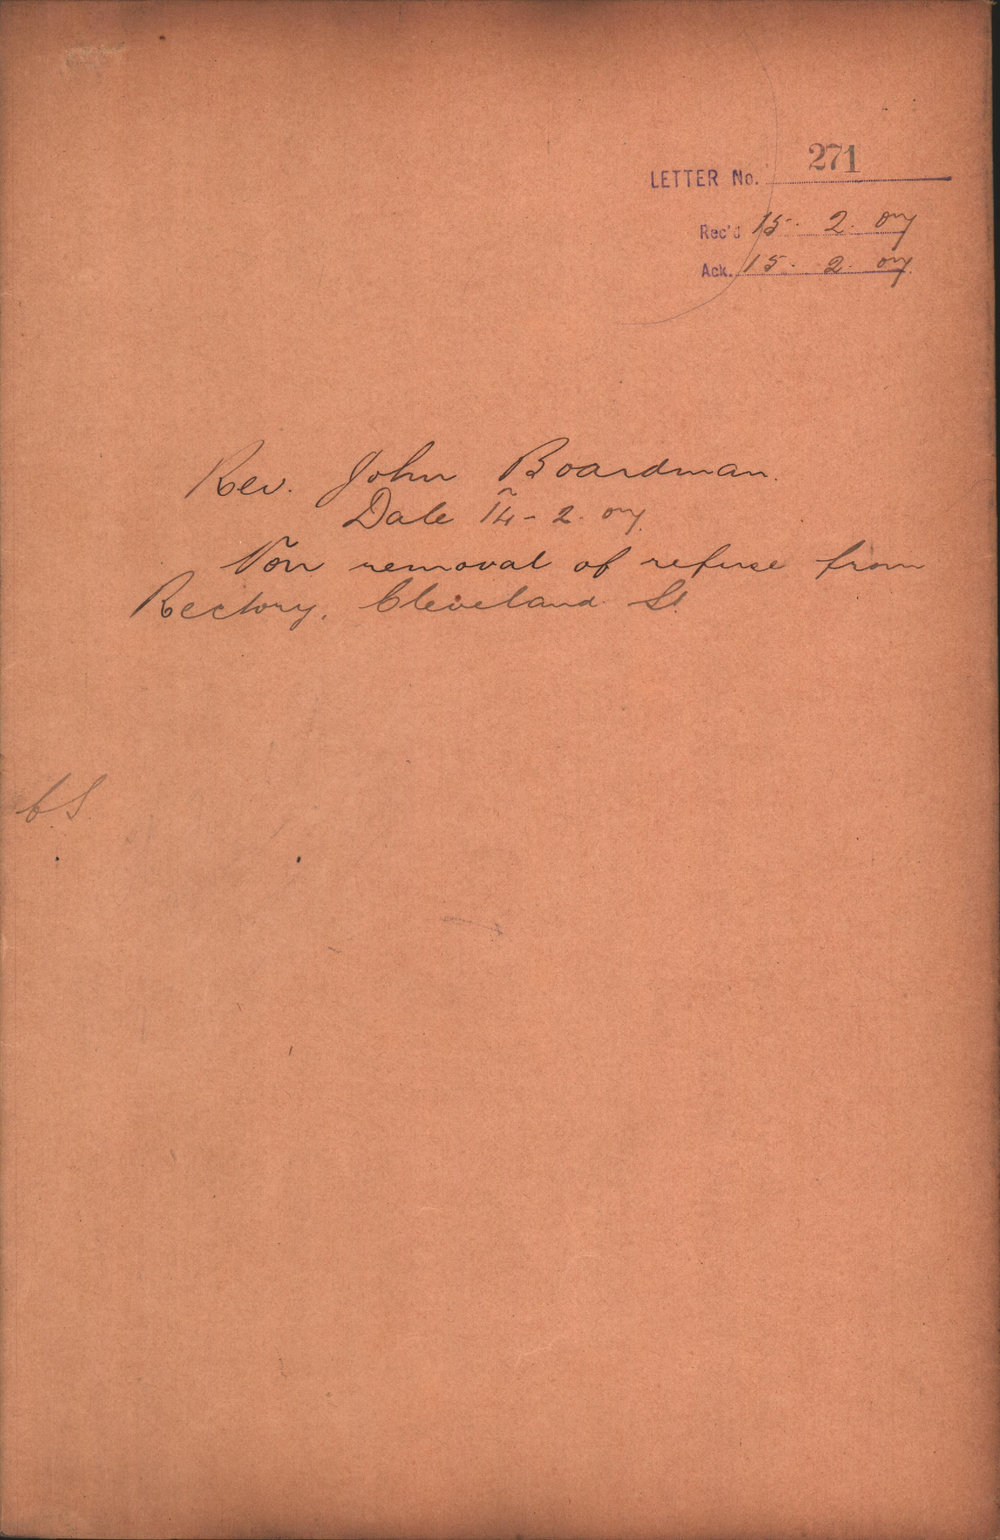 LETTER No. 271
Rec'd 15. 2. 07
Ack. 15. 2. 07
Rev. John Boardman.
Date 14-2.07.
Non removal of refuse from
Rectory, Cleveland St.